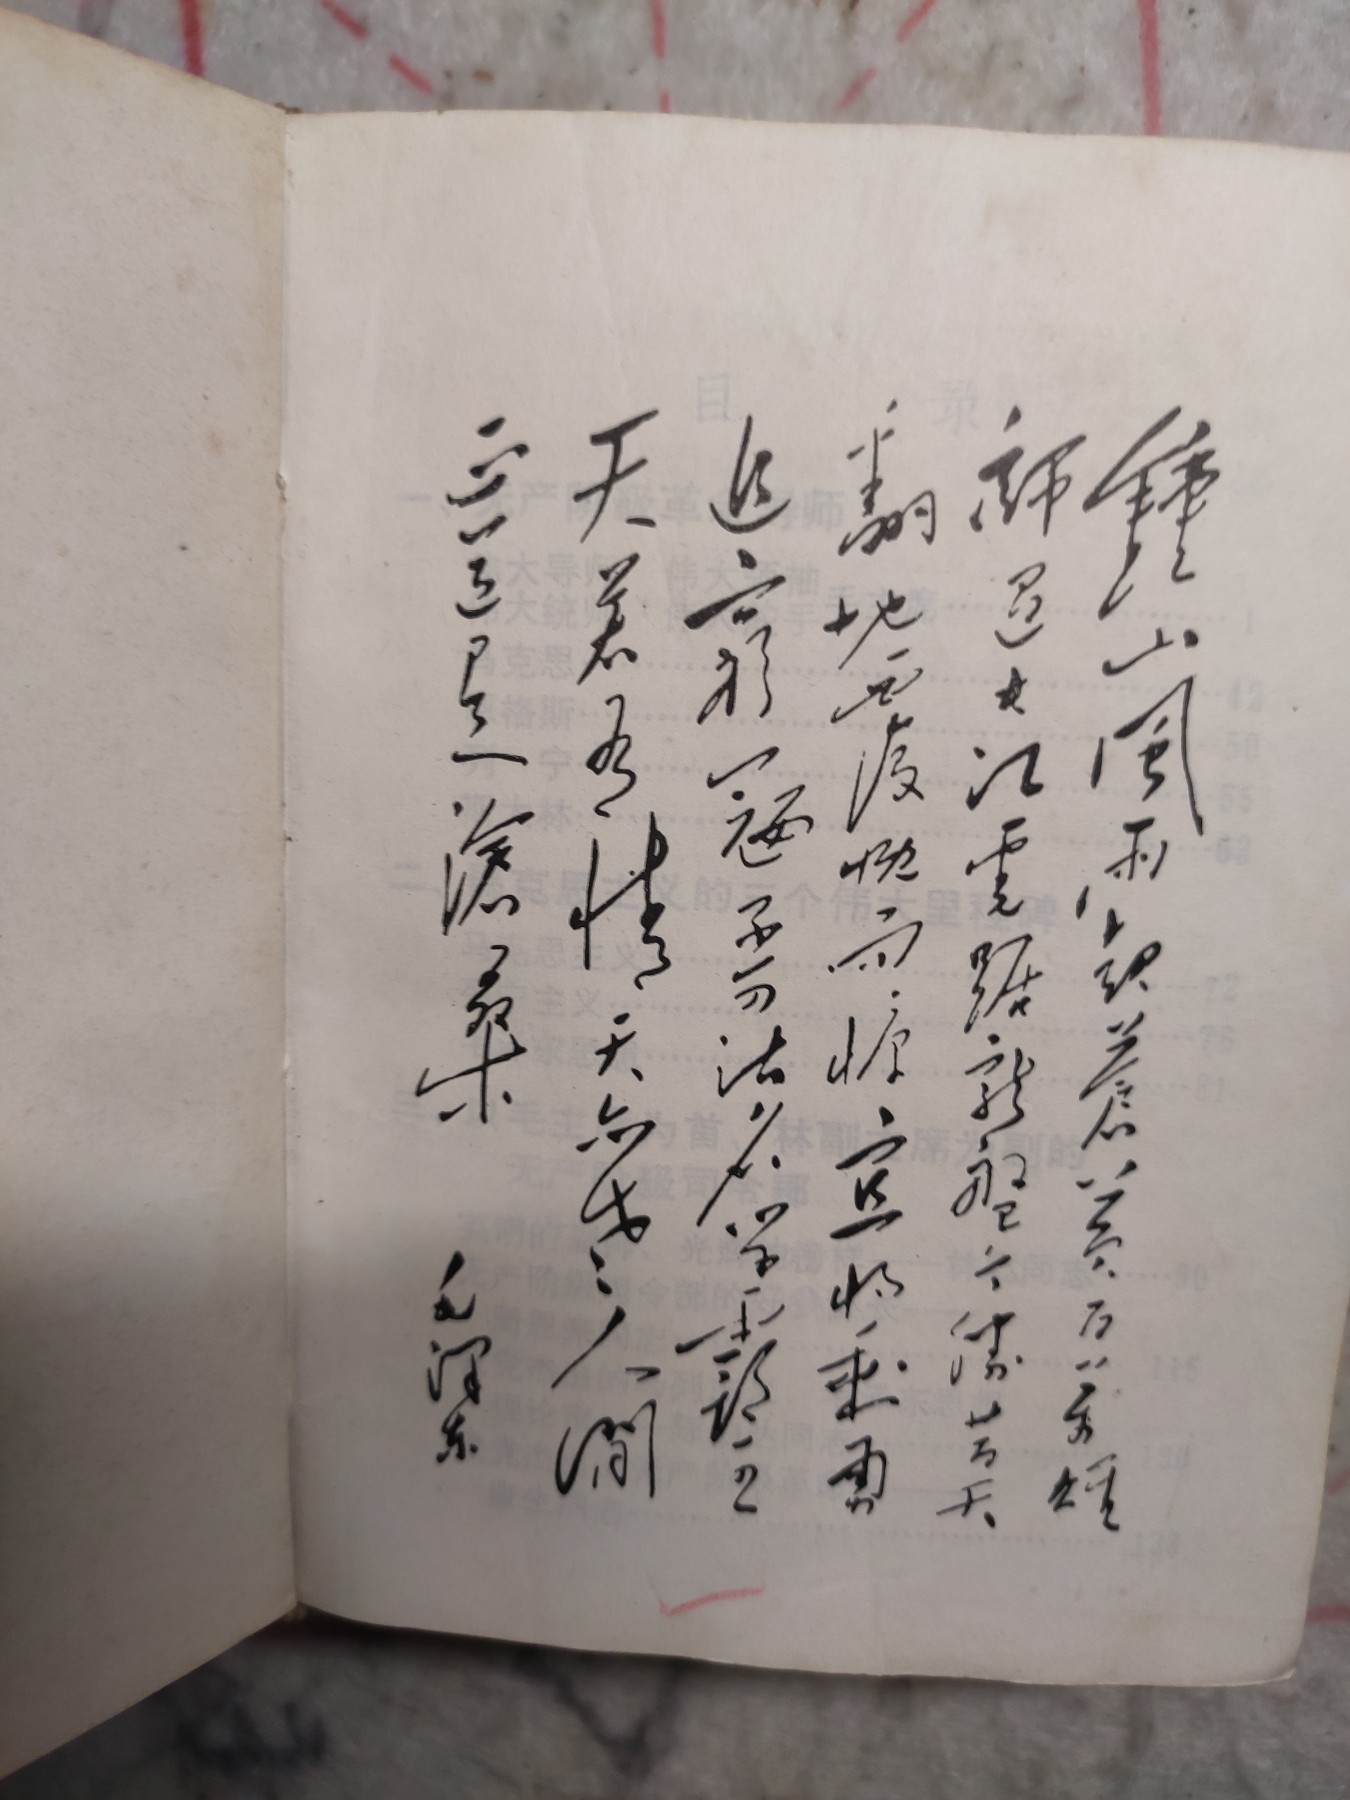 鍾山風雨起蒼黃百萬雄
師過大江虎踞龍盤今勝昔天
翻地覆慨而慷宜將剩勇
追窮寇不可沽名學霸王
天若有情天亦老人間
正道是滄桑
毛澤東